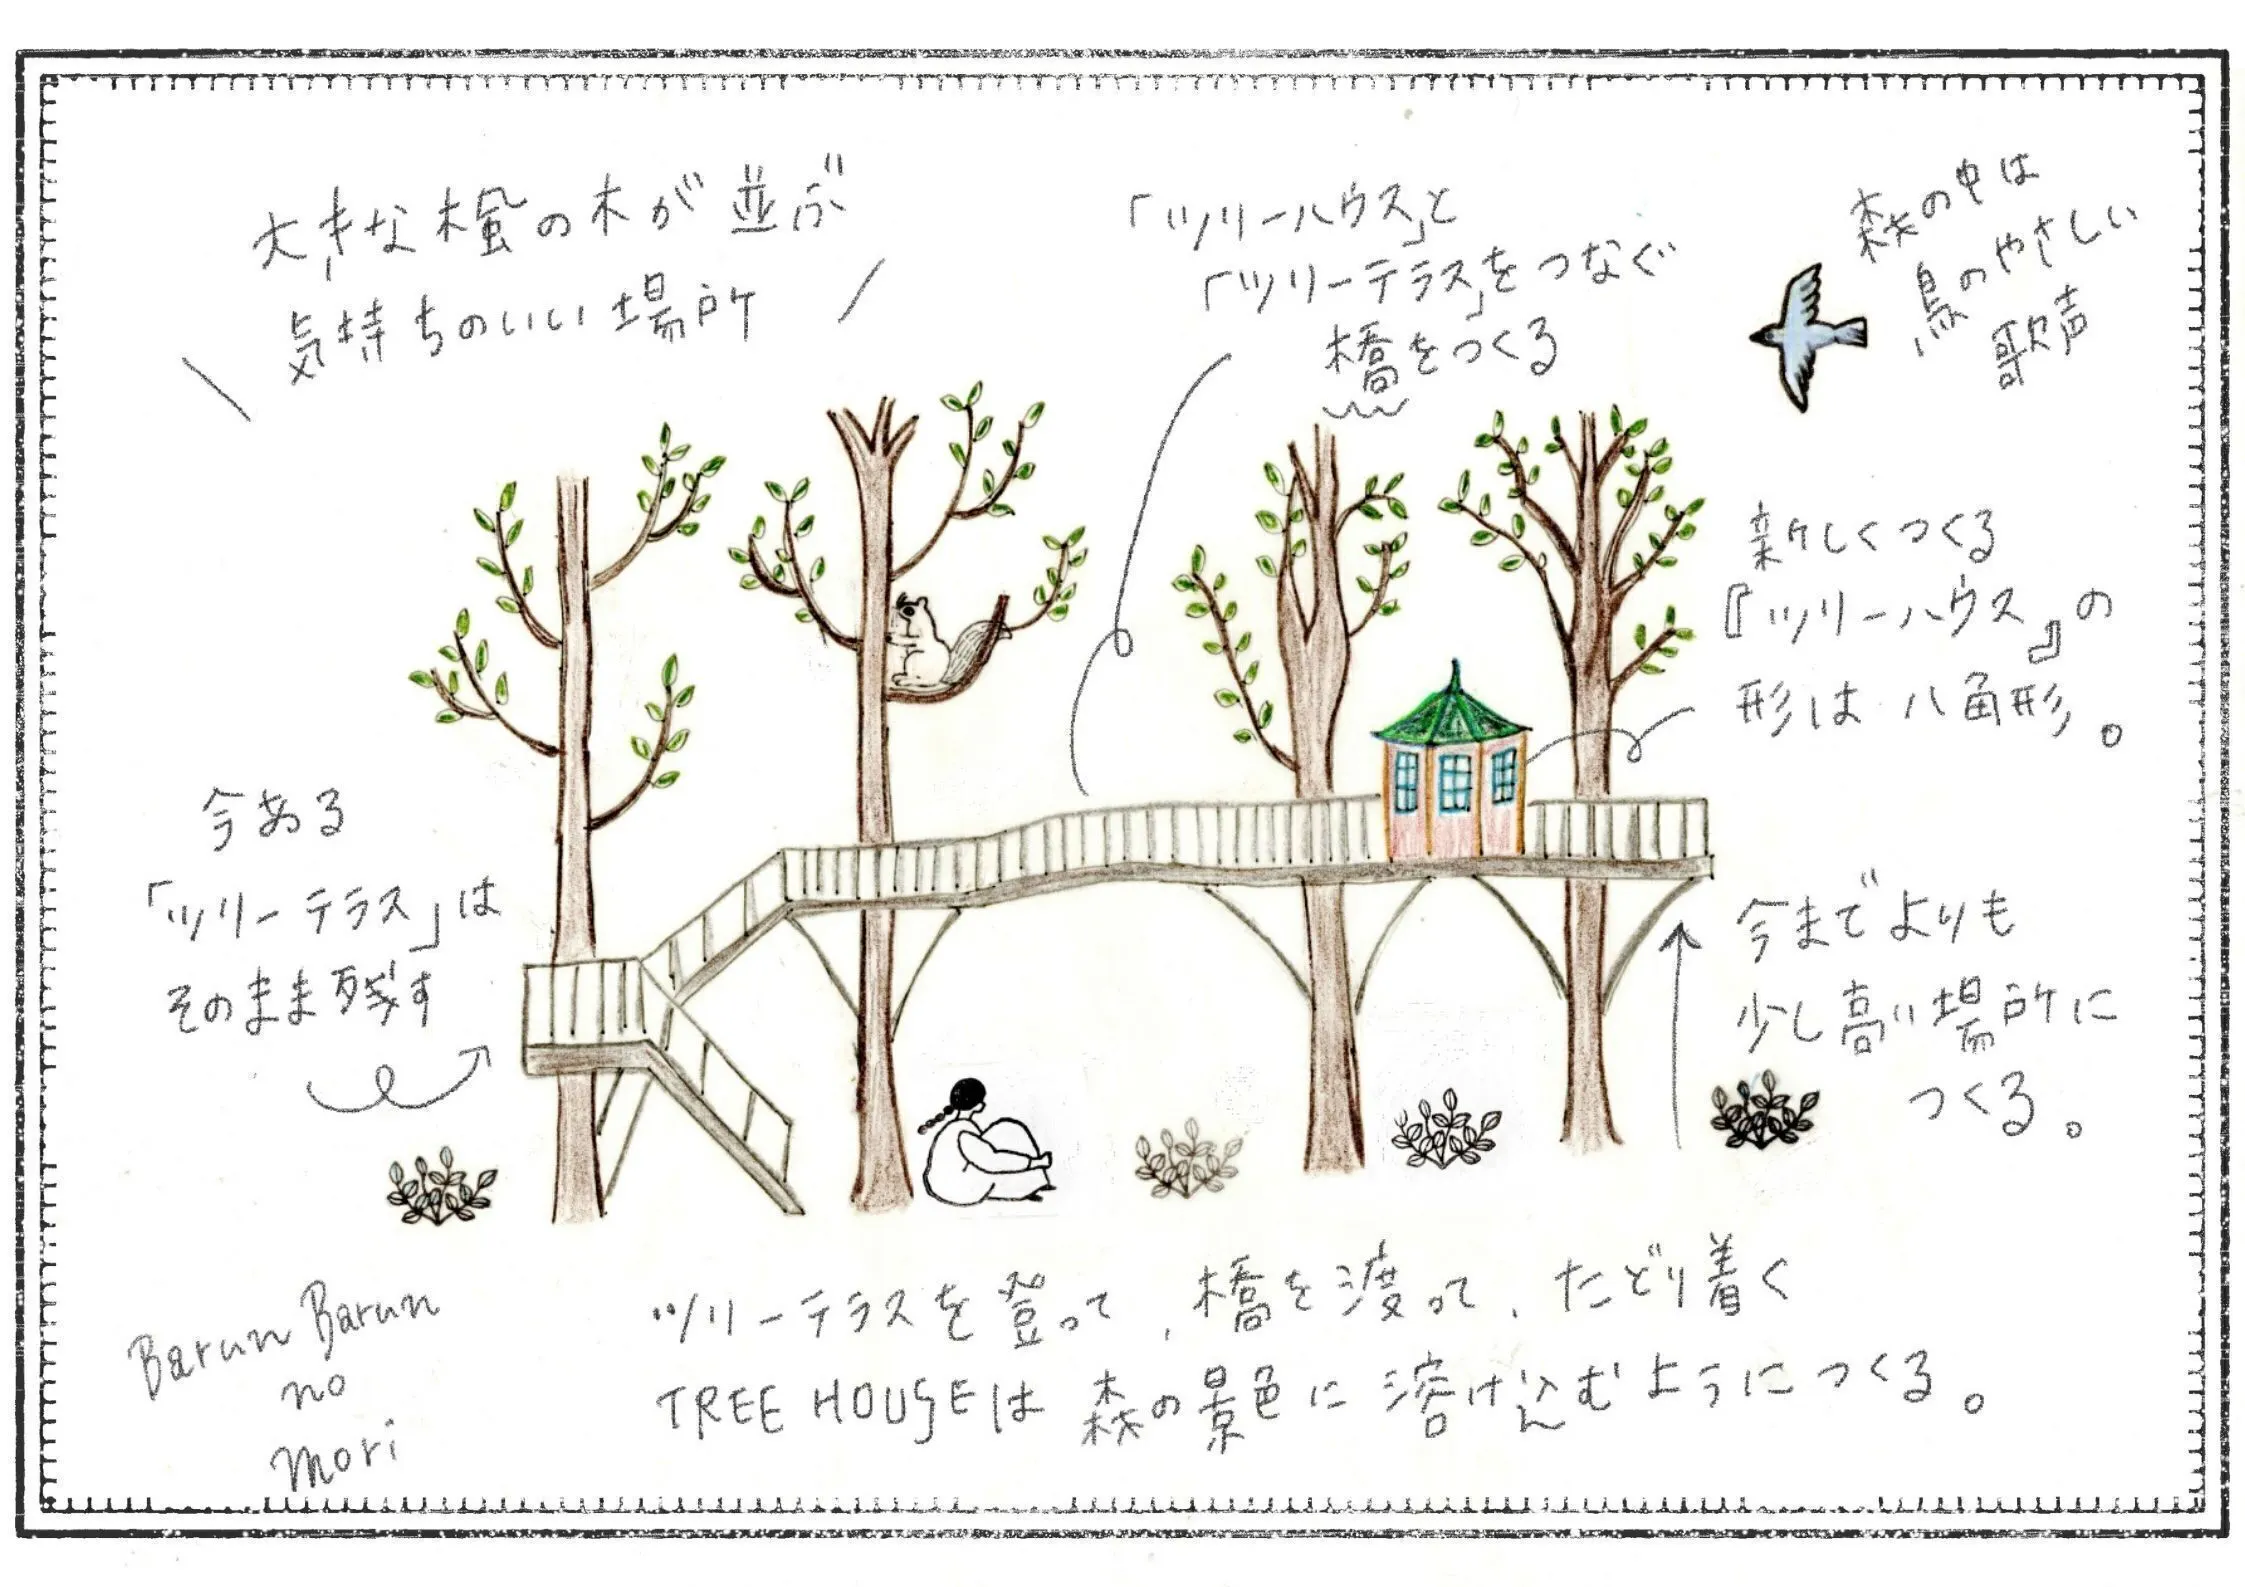 大きな楓の木が並ぶ
気持ちのいい場所
「ツリーハウス」と
「ツリーテラス」をつなぐ
橋をつくる
森の中は
鳥のやさしい
歌声
新しくつくる
『ツリーハウス』の
形は八角形。
今ある
「ツリーテラス」は
そのまま残す
今までよりも
少し高い場所に
つくる。
ツリーテラスを登って、橋を渡って、たどり着く
TREE HOUSEは森の景色に溶け込むようにつくる。
Barun Barun
no
mori